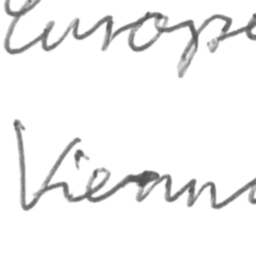 Europe
Vienna